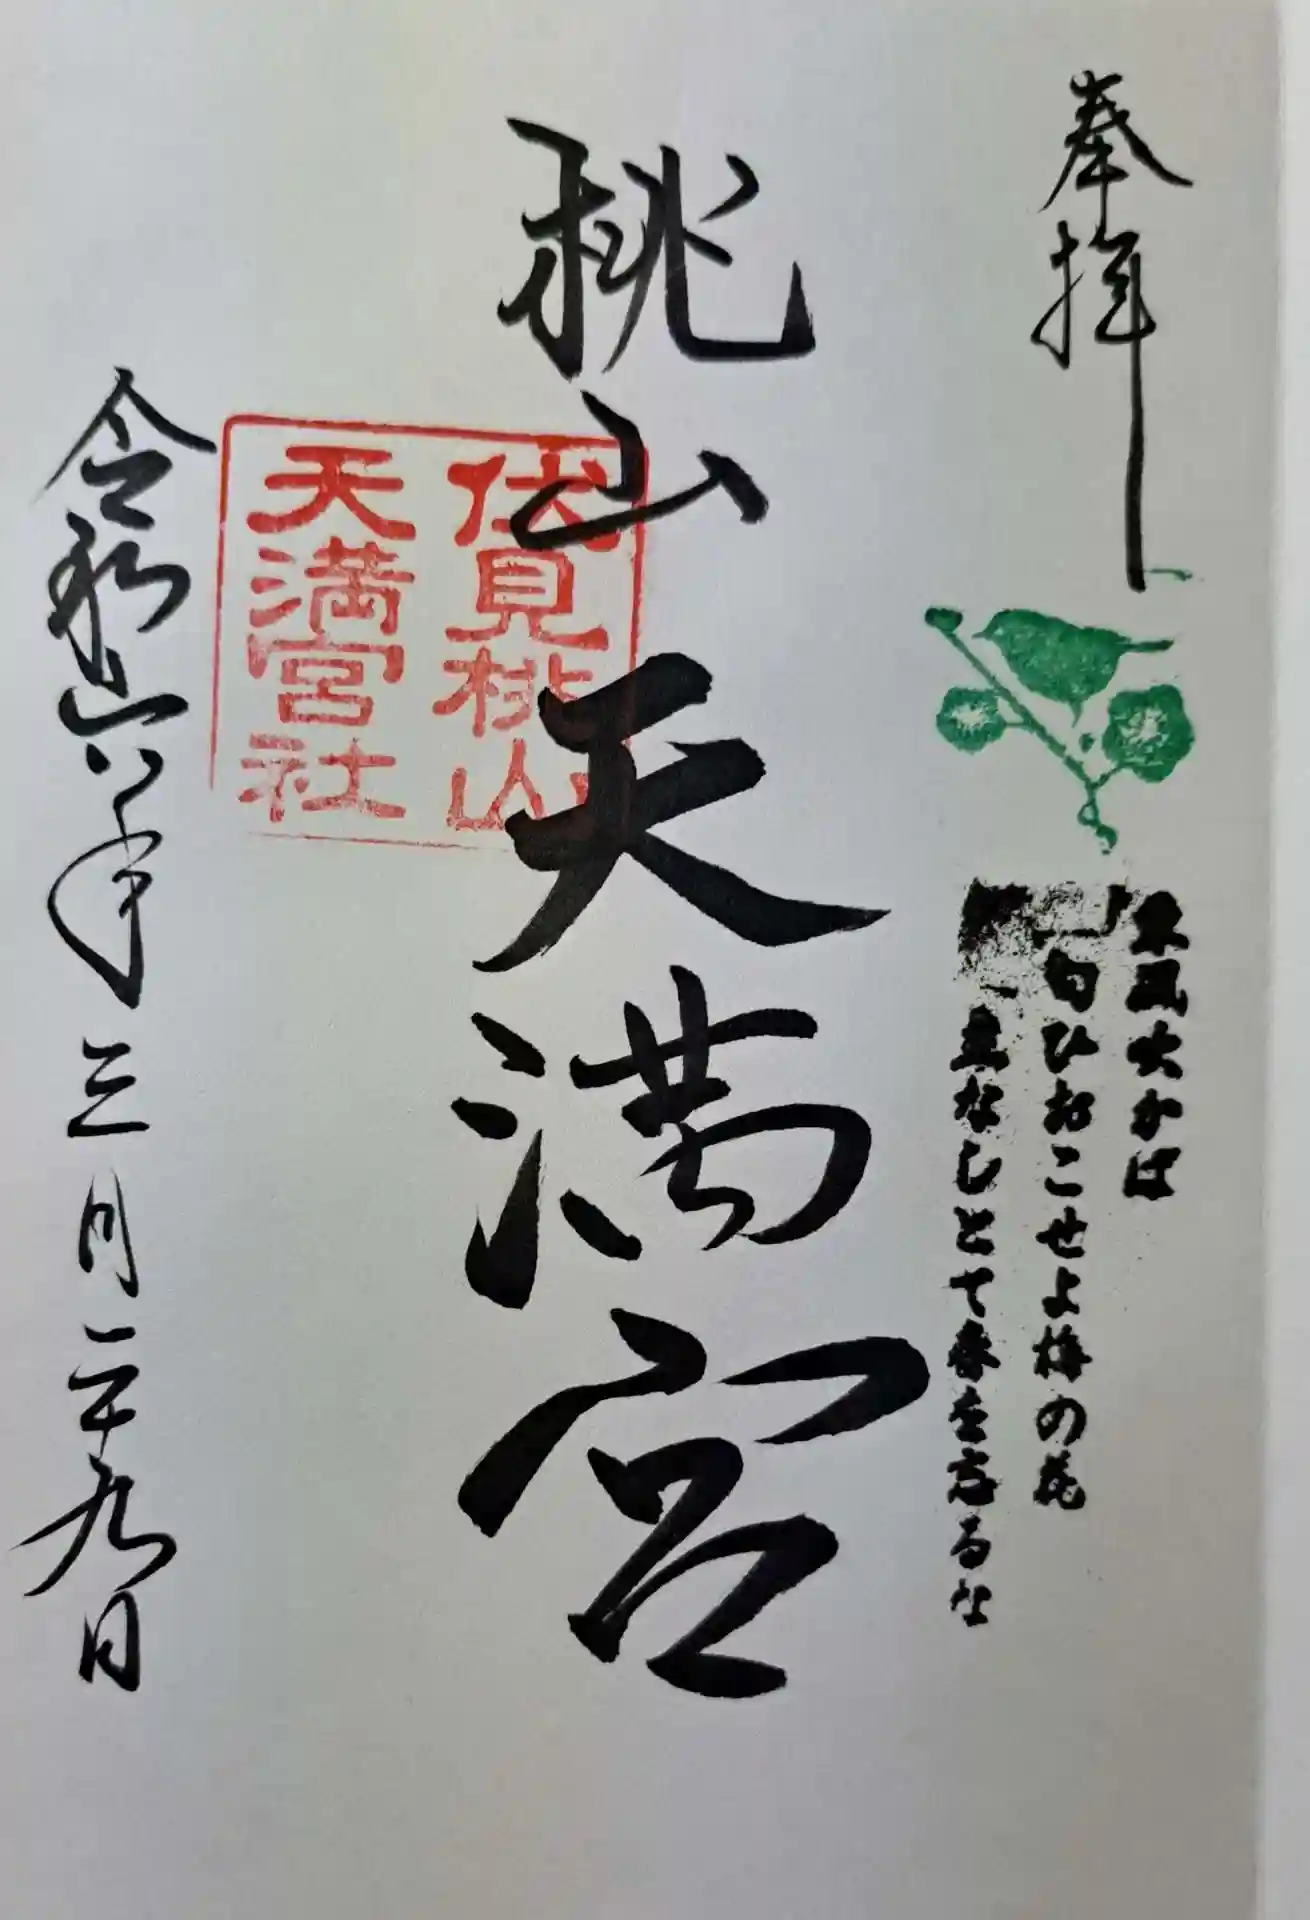 奉拝
東風吹かば
匂ひおこせよ梅の花
主なしとて春を忘るな
桃山天満宮
伏見桃山
天満宮社
令和六年三月二十九日